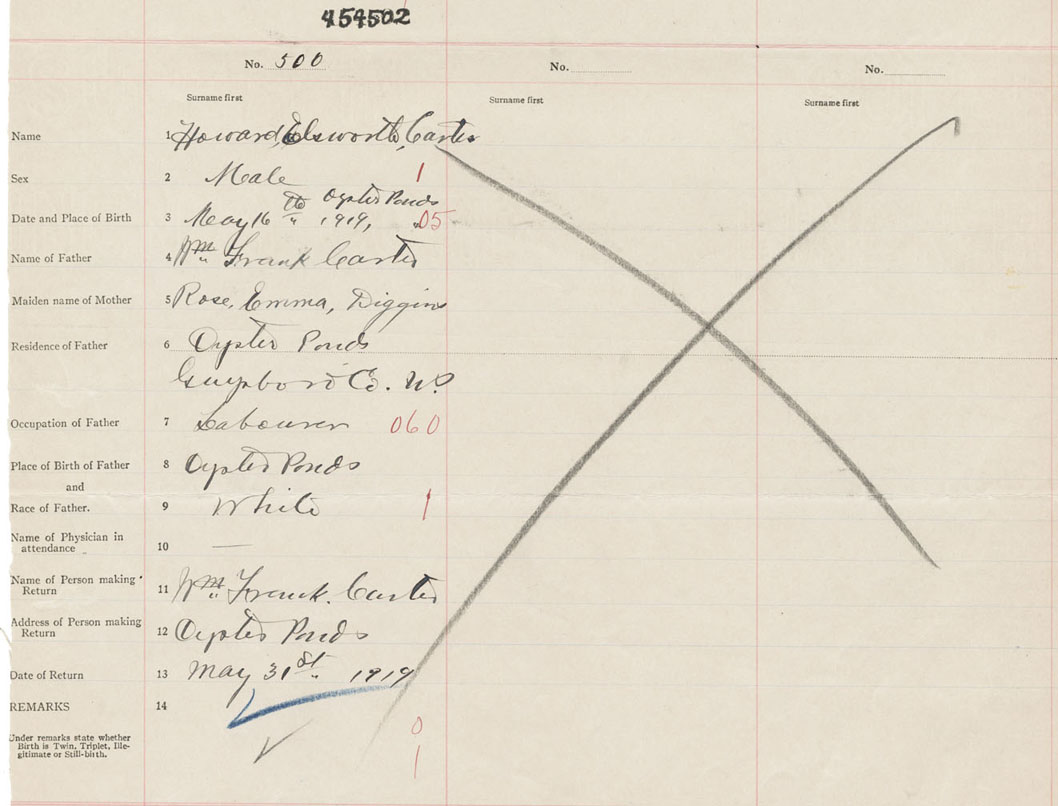 454502
No. 500 No. No.
Surname first Surname first Surname first
Name 1 Howard, Elsworth, Carter
Sex 2 Male 1
Oyster Ponds
Date and Place of Birth 3 May 16th 1919, 05
Name of Father 4 Wm Frank Carter
Maiden name of Mother 5 Rose, Emma, Diggins
Residence of Father 6 Oyster Ponds
Guysboro Co. N.S
Occupation of Father 7 Labourer 060
Place of Birth of Father 8 Oyster Ponds
and
Race of Father. 9 White 1
Name of Physician in
attendance 10 —
Name of Person making
Return 11 Wm Frank. Carter
Address of Person making
Return 12 Oyster Ponds
Date of Return 13 May 31st 1919
REMARKS 14
0
Under remarks state whether
Birth is Twin, Triplet, Ille-
gitimate or Still-birth. 1